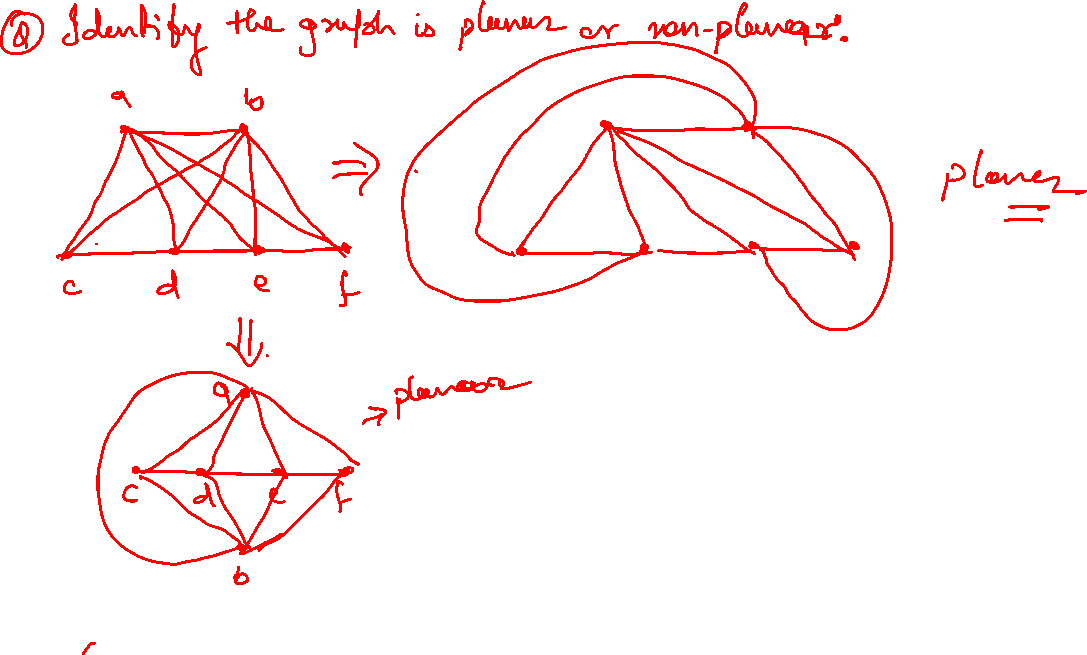 Q Identify the graph is planar or non-planar.
a b
c d e f
⇒
planar
⇓
a
c d e f
b
→ planar